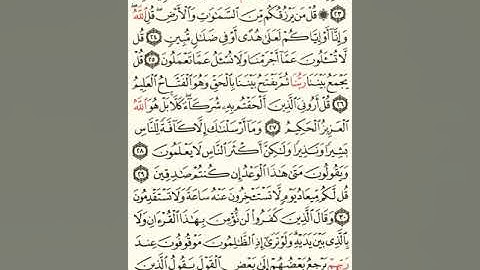 ﴿٢٣﴾ ۞ قُلْ مَن يَرْزُقُكُم مِّنَ السَّمَٰوَٰتِ وَالْأَرْضِ ۖ قُلِ اللَّهُ ۖ
وَإِنَّا أَوْ إِيَّاكُمْ لَعَلَىٰ هُدًى أَوْ فِي ضَلَٰلٍ مُّبِينٍ ﴿٢٤﴾ قُل
لَّا تُسْـَٔلُونَ عَمَّا أَجْرَمْنَا وَلَا نُسْـَٔلُ عَمَّا تَعْمَلُونَ ﴿٢٥﴾ قُلْ
يَجْمَعُ بَيْنَنَا رَبُّنَا ثُمَّ يَفْتَحُ بَيْنَنَا بِالْحَقِّ وَهُوَ الْفَتَّاحُ الْعَلِيمُ
﴿٢٦﴾ قُلْ أَرُونِيَ الَّذِينَ أَلْحَقْتُم بِهِۦ شُرَكَآءَ ۖ كَلَّا ۚ بَلْ هُوَ اللَّهُ
الْعَزِيزُ الْحَكِيمُ ﴿٢٧﴾ وَمَآ أَرْسَلْنَٰكَ إِلَّا كَآفَّةً لِّلنَّاسِ
بَشِيرًا وَنَذِيرًا وَلَٰكِنَّ أَكْثَرَ النَّاسِ لَا يَعْلَمُونَ ﴿٢٨﴾
وَيَقُولُونَ مَتَىٰ هَٰذَا الْوَعْدُ إِن كُنتُمْ صَٰدِقِينَ ﴿٢٩﴾
قُل لَّكُم مِّيعَادُ يَوْمٍ لَّا تَسْتَـْٔخِرُونَ عَنْهُ سَاعَةً وَلَا تَسْتَقْدِمُونَ
﴿٣٠﴾ وَقَالَ الَّذِينَ كَفَرُوا۟ لَن نُّؤْمِنَ بِهَٰذَا الْقُرْءَانِ وَلَا
بِالَّذِي بَيْنَ يَدَيْهِ ۗ وَلَوْ تَرَىٰٓ إِذِ الظَّٰلِمُونَ مَوْقُوفُونَ عِندَ
رَبِّهِمْ يَرْجِعُ بَعْضُهُمْ إِلَىٰ بَعْضٍ الْقَوْلَ يَقُولُ الَّذِينَ